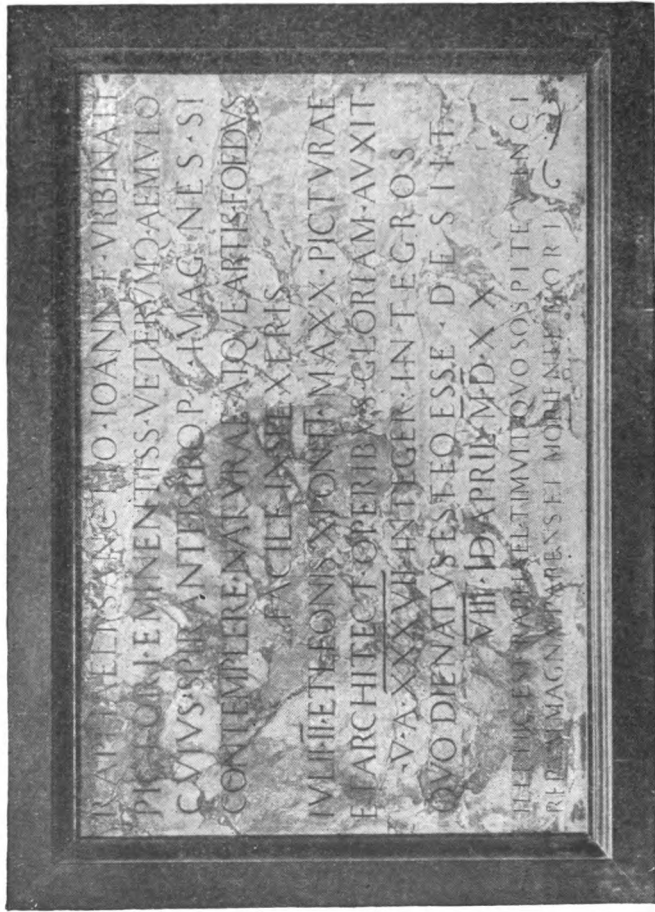 RAPHAELI·SANCTIO·IOANN·F·VRBINATI
PICTORI·EMINENTISS·VETERVMQ·AEMVLO
CVIVS·SPIRANTEIS·PROP·IMAGINES·SI
CONTEMPLERE·NATVRAE·ATQVE·ARTIS·FOEDVS
FACILE·INSPEXERIS
IVLII·II·ET·LEONIS·X·PONTT·MAXX·PICTVRAE
ET·ARCHITECT·OPERIBVS·GLORIAM·AVXIT
V·A·XXXVII·INTEGER·INTEGROS
QVO DIE NATVS EST EO ESSE DESIIT
VIII·ID·APRIL·M·D·XX
ILLE HIC EST RAPHAEL TIMVIT QVO SOSPITE VINCI
RERVM MAGNA PARENS ET MORIENTE MORI